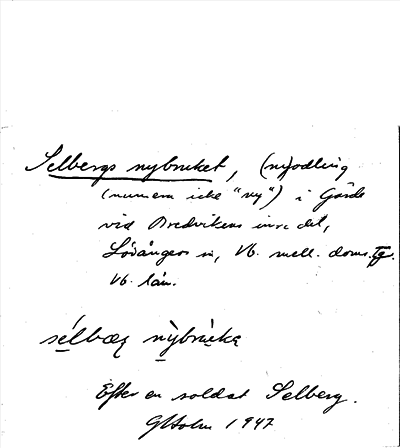 Selbergs nybruket, (ny)odling
(numera icke "ny") i Gärde
vid Bredvikens inre del,
Lövångers sn, Vb. mell. doms. tg.
Vb. län.
sélbæʀ nỳbrùka
Efter en soldat Selberg.
GHolm 1947